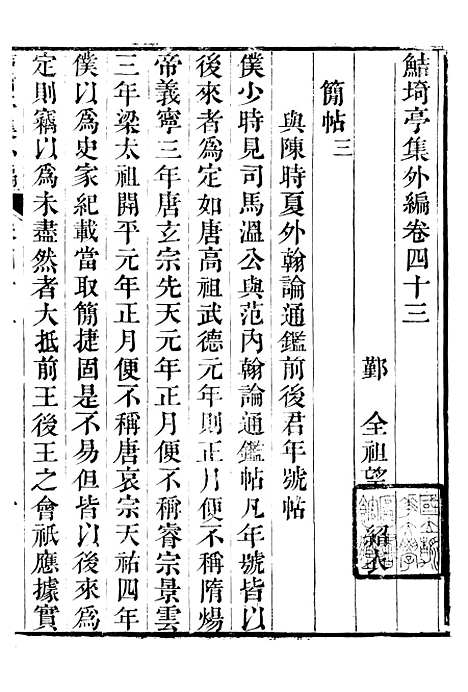 鮚埼亭集外編卷四十三
鄞 全祖望 紹衣
簡帖三
與陳時夏外翰論通鑑前後君年號帖
僕少時見司馬溫公與范內翰論通鑑帖凡年號皆以
後來者為定如唐高祖武德元年則正月便不稱隋煬
帝義寧三年唐玄宗先天元年正月便不稱睿宗景雲
三年梁太祖開平元年正月便不稱唐哀宗天祐四年
僕以為史家紀載當取簡捷固是不易但皆以後來為
定則竊以為未盡然者大抵前王後王之會祇應據實